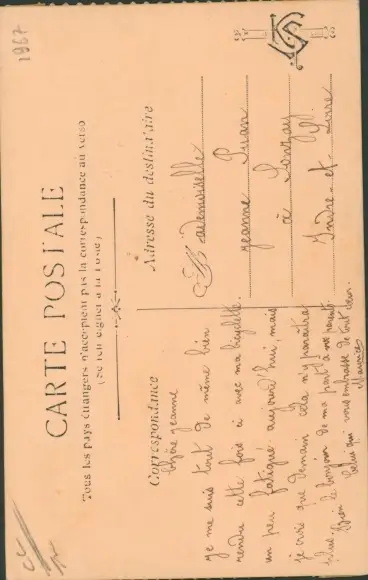 1967
CARTE POSTALE
Tous les pays étrangers n'acceptent pas la correspondance au verso
(Se renseigner à la Poste)
Correspondance
Chère Jeanne
je me suis tout de même bien
rendu cette fois ci avec ma bicyclette.
un peu fatigué aujourd'hui, mais
je crois que demain cela n'y paraîtra
plus. Bien le bonjour de ma part à vos parents.
Celui qui vous embrasse de tout cœur.
Maurice
Adresse du destinataire
Mademoiselle
Jeanne
à Sonzay
Indre-et-Loire